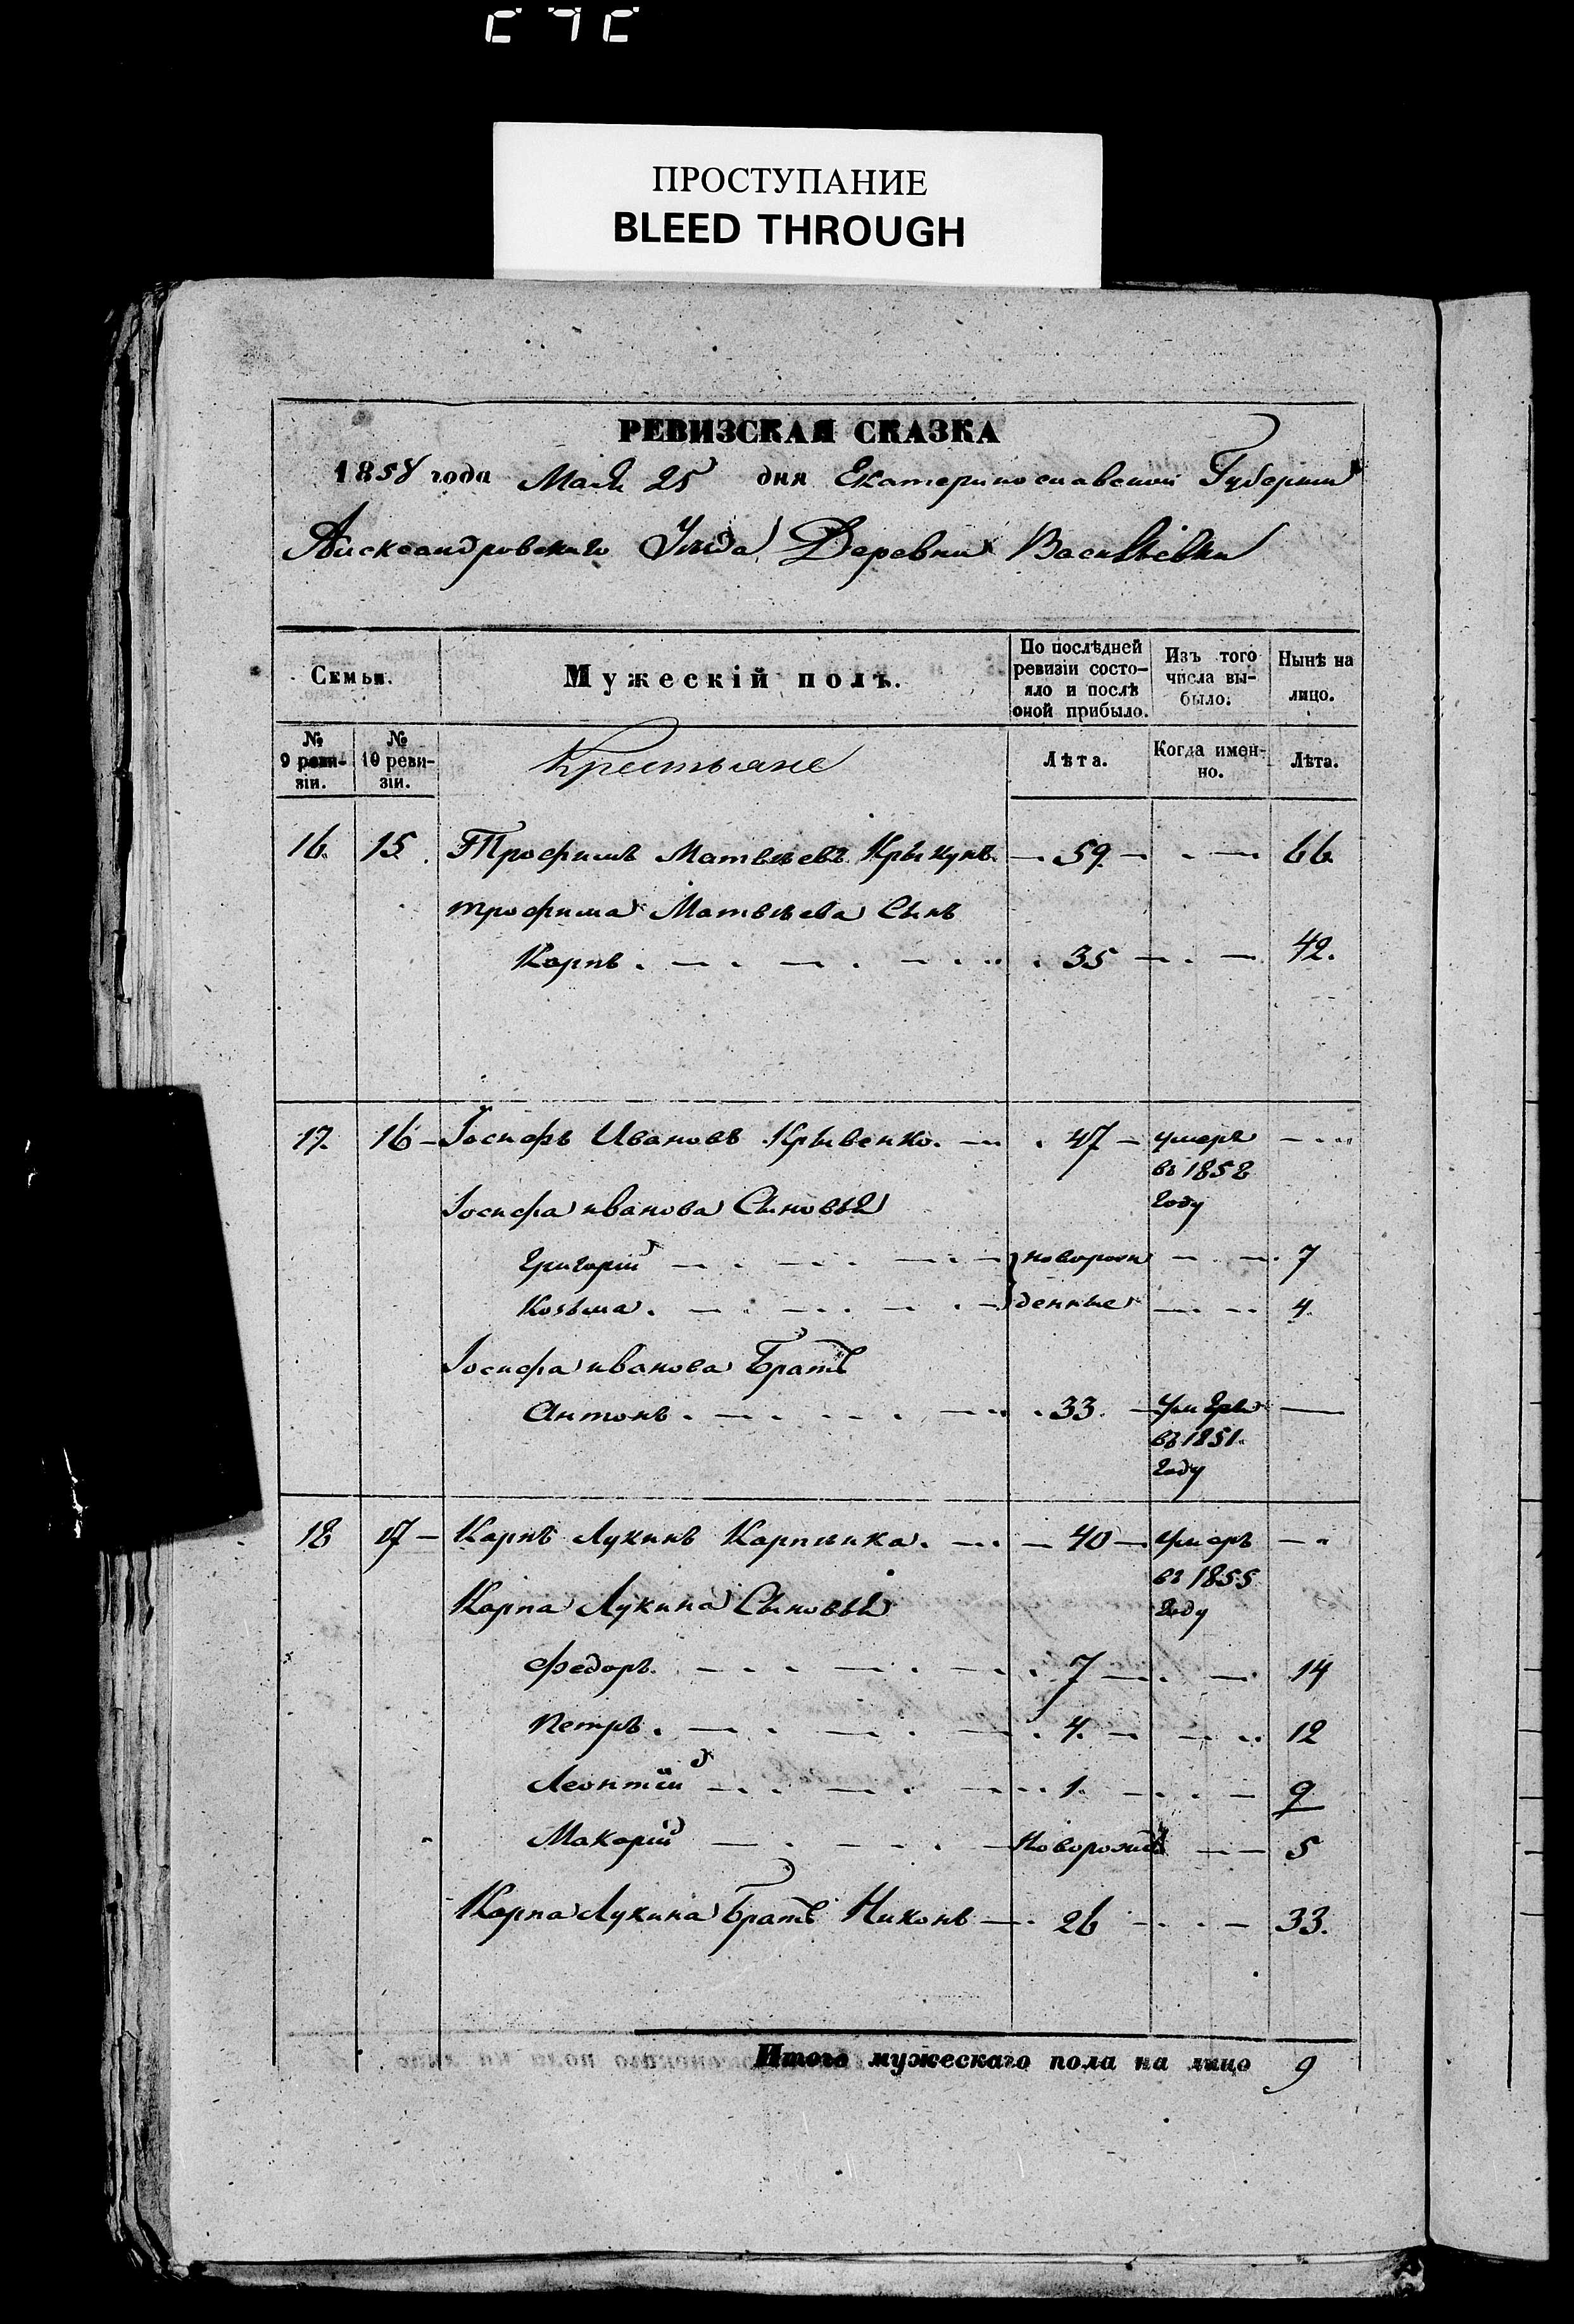 ПРОСТУПАНИЕ
BLEED THROUGH
РЕВИЗСКАЯ СКАЗКА
1858 года Мая 25 дня Екатеринославской Губернiи
Александровскаго Уѣзда Деревни Васильевки
Семьи. Мужескiй полъ. По послѣдней ревизiи состо-яло и послѣ оной прибыло. Изъ того числа вы-было. Нынѣ на лицо.
№ 9 реви-зiи. № 10 реви-зiи. Крестьяне Лѣта. Когда имен-но. Лѣта.
16. 15. Трофимъ Матвѣевъ Крыкунъ. 59 66
трофима Матвѣева Сынъ
Карпъ. 35 42.
17. 16 Iосифъ Ивановъ Крывенко. 47 умеръ
въ 1858
Iосифа иванова Сыновья году
Григорiй новорож 7
Козьма. денные 4.
Iосифа иванова Братъ
Антонъ. 33. Умеръ
въ 1851.
году
18 17 Карпъ Лукинъ Карпенка. 40 умеръ
въ 1855
Карпа Лукина Сыновья году
Федоръ. 7 14
Петръ. 4. 12
Леонтiй 1. 9
Макарiй Новорожд 5
Карпа Лукина Братъ Никонъ 26 33.
Итого мужескаго пола на лицо 9